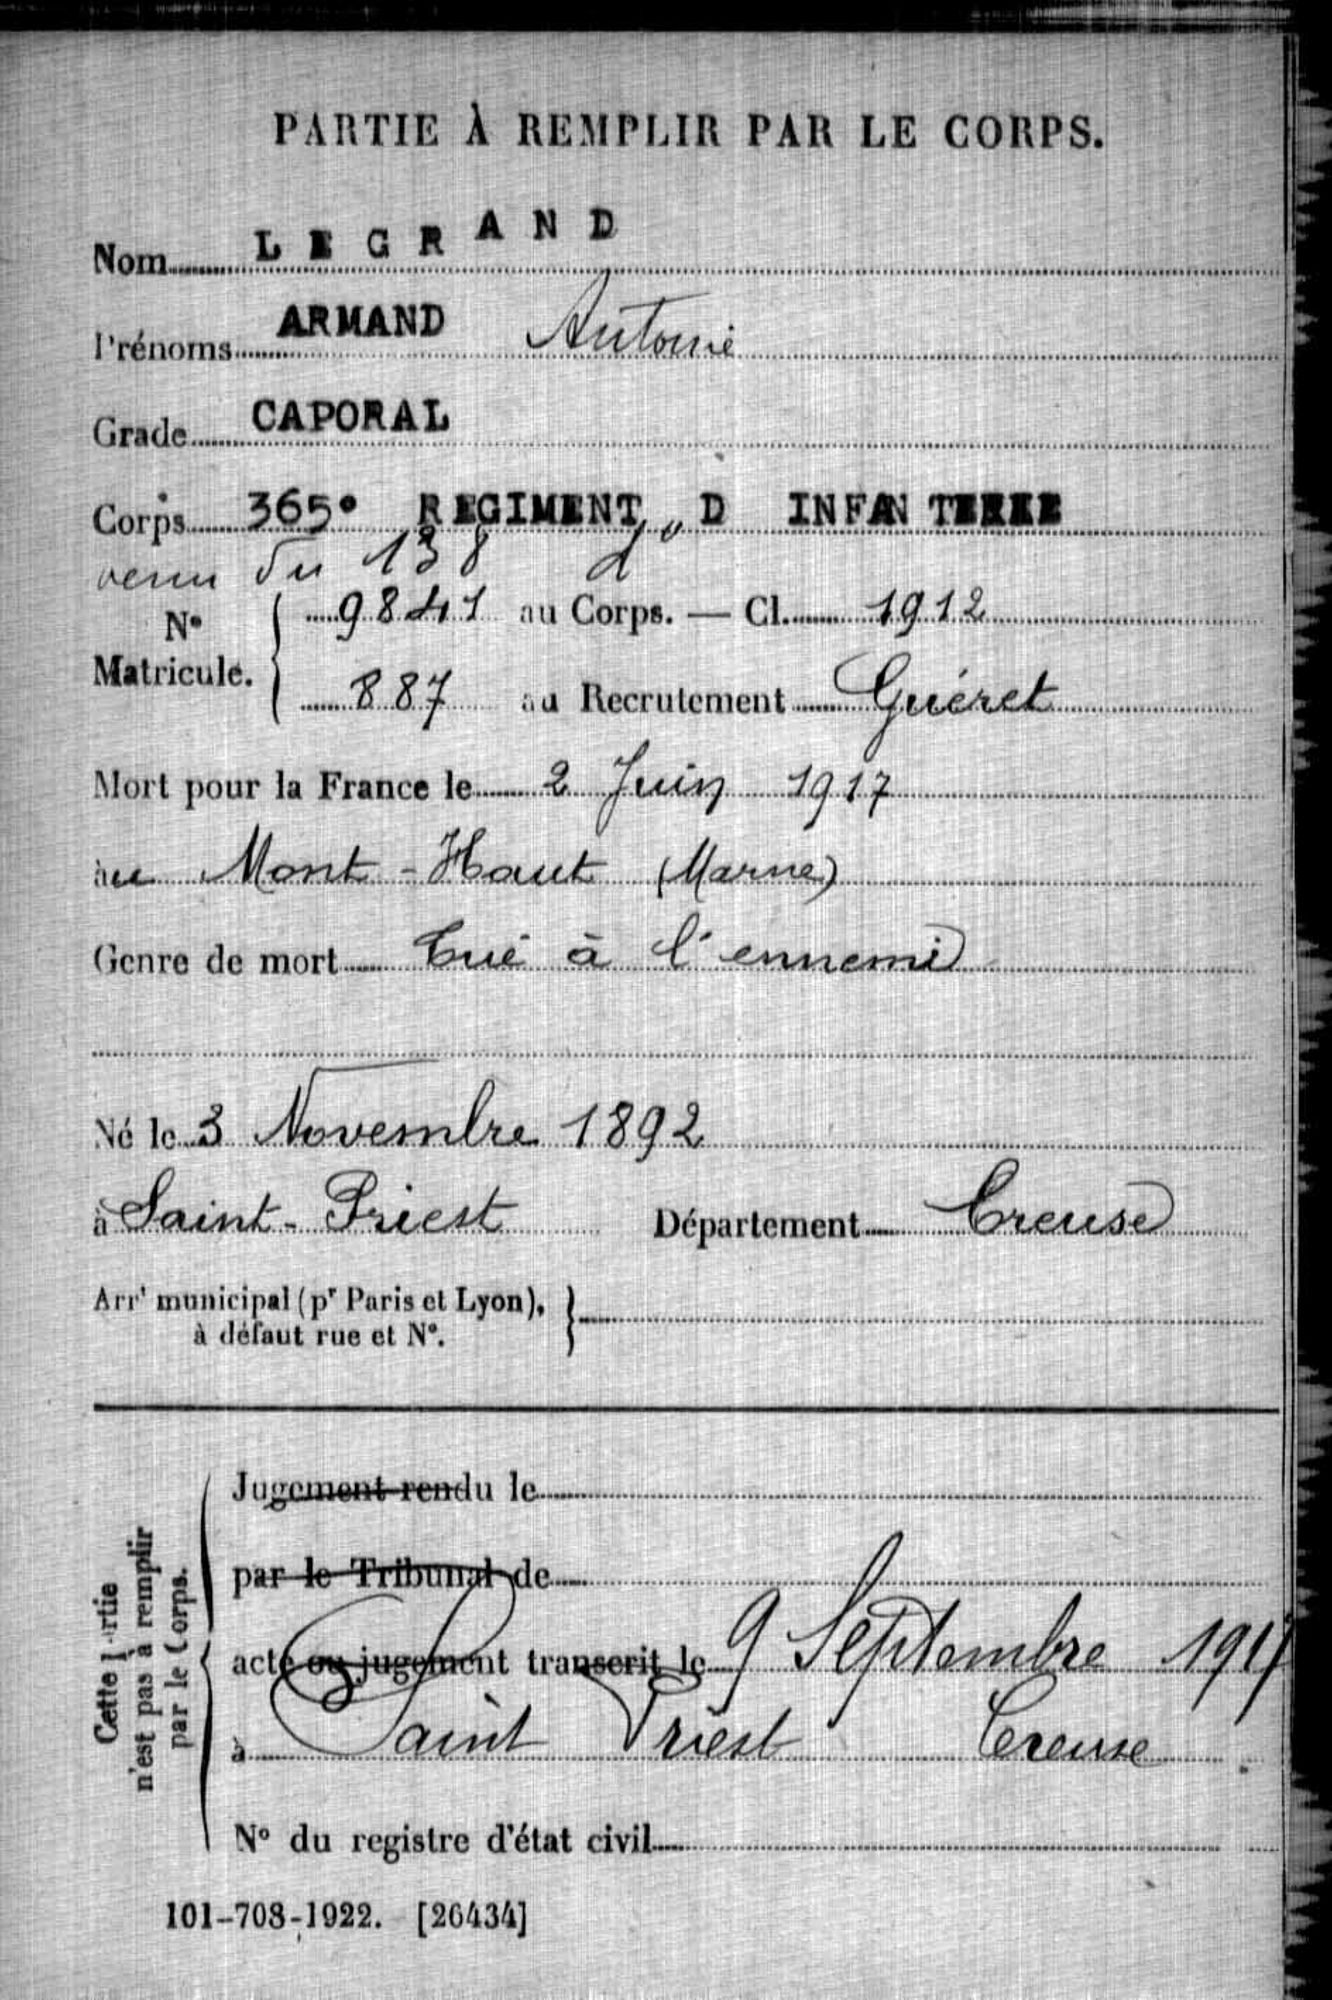 PARTIE À REMPLIR PAR LE CORPS.
Nom LEGRAND
Prénoms ARMAND Antoine
Grade CAPORAL
Corps 365° REGIMENT D INFANTERIE
venu du 138 d°
N° Matricule. 9841 au Corps. — Cl. 1912
887 au Recrutement Guéret
Mort pour la France le 2 Juin 1917
au Mont-Haut (Marne)
Genre de mort Tué à l'ennemi
Né le 3 Novembre 1892
à Saint-Priest Département Creuse
Arrt municipal (pr Paris et Lyon),
à défaut rue et N°.
Cette partie
n'est pas à remplir
par le Corps.
Jugement rendu le
par le Tribunal de
acte ou jugement transcrit le 9 Septembre 1917
à Saint Priest Creuse
N° du registre d'état civil
101-708-1922. [26434]